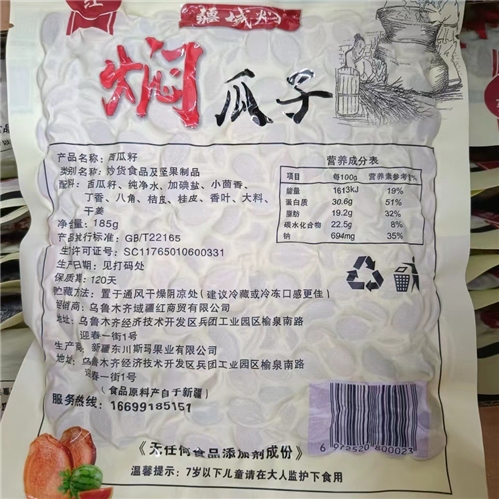 红
疆域灼
焖瓜子
产品名称：西瓜籽
类别名称：炒货食品及坚果制品
配料：西瓜籽、纯净水、加碘盐、小茴香、
丁香、八角、桔皮、桂皮、香叶、大料、
干姜
净含量：185g
产品执行标准：GB/T22165
生产许可证号：SC11765010600331
生产日期：见打码处
保质期：120天
贮藏方法：置于通风干燥阴凉处（建议冷藏或冷冻口感更佳）
经销商：乌鲁木齐域疆红商贸有限公司
地址：乌鲁木齐经济技术开发区兵团工业园区榆泉南路
迎春一街1号
生产商：新疆东川斯玛果业有限公司
地址：乌鲁木齐经济技术开发区兵团工业园区榆泉南路
迎春一街1号
（食品原料产自于新疆）
服务热线：16699185151
营养成分表
项目 每100g 营养素参考值%
能量 1613kJ 19%
蛋白质 30.6g 51%
脂肪 19.2g 32%
碳水化合物 22.5g 8%
钠 694mg 35%
6 972520 800023
《无任何食品添加剂成份》
温馨提示：7岁以下儿童请在大人监护下食用